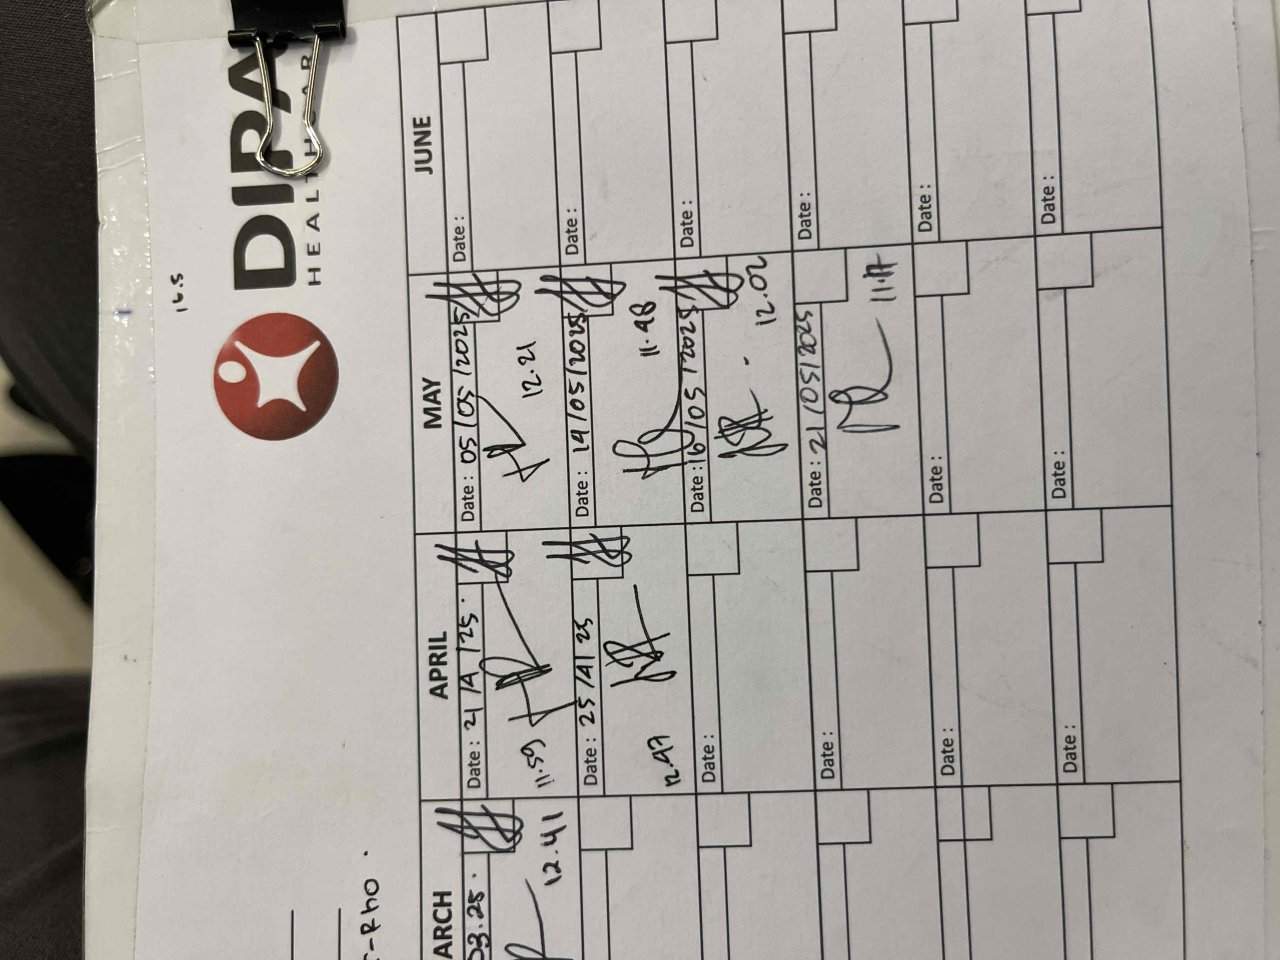 16.5
DIPA
HEALTH AR
-Rho.
ARCH
03.25.
12.41
APRIL
Date : 21/4/25.
11.59
Date : 25/4/25
12.47
Date :
Date :
Date :
Date :
MAY
Date : 05/05/2025
12.21
Date : 14/05/2025
11.48
Date : 16/05/2025
12.02
Date : 21/05/2025
11.17
Date :
Date :
JUNE
Date :
Date :
Date :
Date :
Date :
Date :